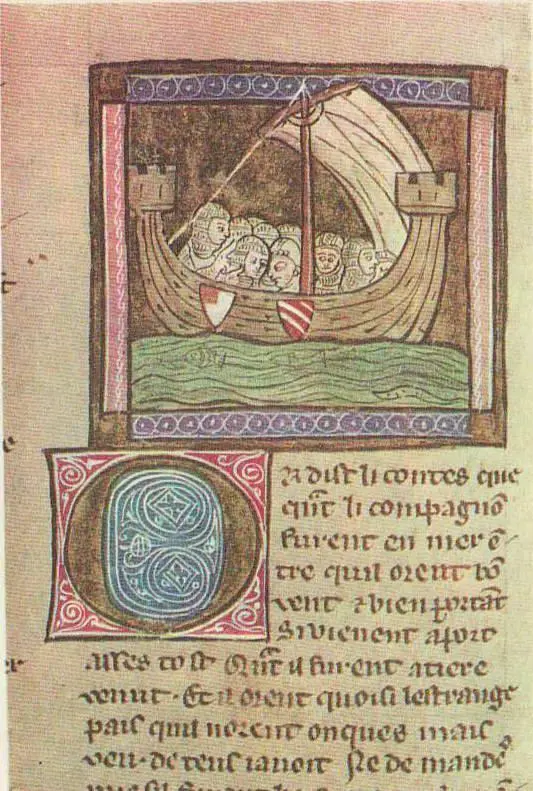 O
r dist li contes que
qn̄t li compagnō
furent en mer ē
tre quil orent bō
vent ⁊ bien portāt
Si vienent aport
asses tost Qn̄t il furent atiere
venut · Et il orent quoisi lestrange
pais quil norent onques mais
veu · de teus iavoit Ne de mandeͦ